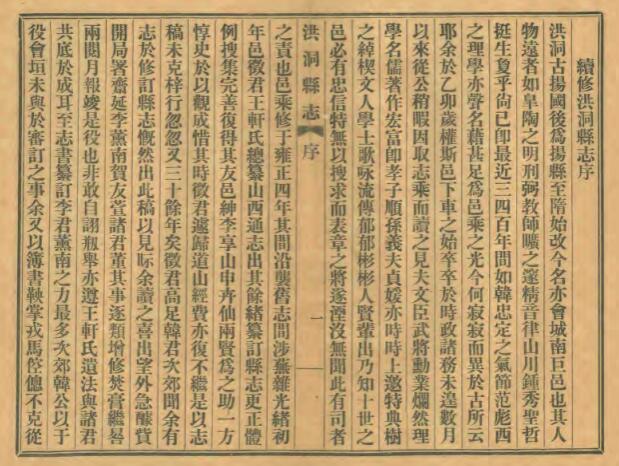 續修洪洞縣志序
洪洞古揚國後爲揚縣至隋始改今名亦會城南巨邑也其人
物遠者如皐陶之明刑弼教師曠之邃精音律山川鍾秀聖哲
挺生夐乎尙已卽最近三四百年間如韓忠定之氣節范彪西
之理學亦聲名藉甚足爲邑乘之光今何寂寂而異於古所云
耶余於乙卯歲權斯邑下車之始卒卒於時政諸務未遑數月
以來從公稍暇因取志乘而讀之見夫文臣武將勳業爛然理
學名儒著作宏富卽孝子順孫義夫貞媛亦時時上邀特典樹
之綽楔文人學士歌咏流傳郁郁彬彬人賢輩出乃知十世之
邑必有忠信特無以搜求而表章之將遂湮沒無聞此有司者
洪洞縣志 序 一
之責也邑乘修于雍正四年其間沿襲舊志間涉蕪雜光緒初
年邑徵君王軒氏總纂山西通志出其餘緒纂訂縣志更正體
例搜集完善復得其友邑紳李享山申卉仙兩賢爲之助一方
惇史於以觀成惜其時徵君遽歸道山經費亦復不繼是以志
稿未克梓行忽忽又三十餘年矣徵君高足韓君次郊聞余有
志於修訂縣志慨然出此稿以見眎余讀之喜出望外急醵貲
開局署齋延李薰南賀友萱諸君董其事逐類增修焚膏繼晷
兩閱月報竣是役也非敢自詡瓶舉亦遵王軒氏遺法與諸君
共底於成耳至志書纂訂李君薰南之力最多次郊韓公以于
役會垣未與於審訂之事余又以簿書鞅掌戎馬倥傯不克從